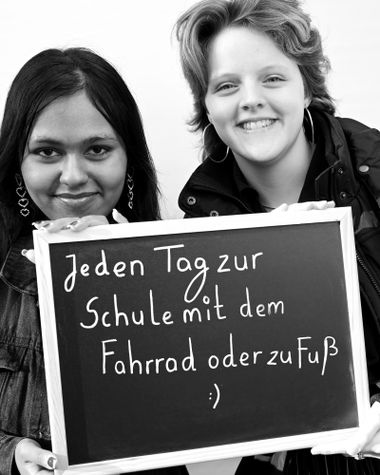 Jeden Tag zur
Schule mit dem
Fahrrad oder zu Fuß
:)